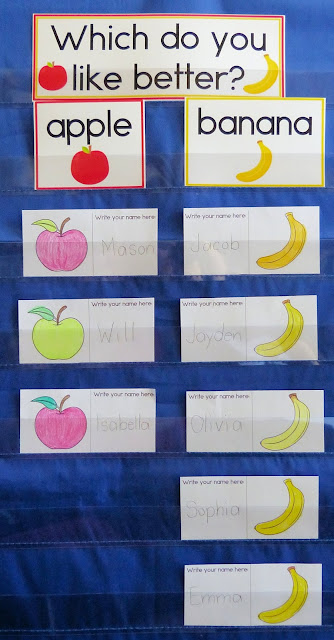 Which do you
like better?
apple
banana
Write your name here:
Mason
Write your name here:
Jacob
Write your name here:
Will
Write your name here:
Jayden
Write your name here:
Isabella
Write your name here:
Olivia
Write your name here:
Sophia
Write your name here:
Emma